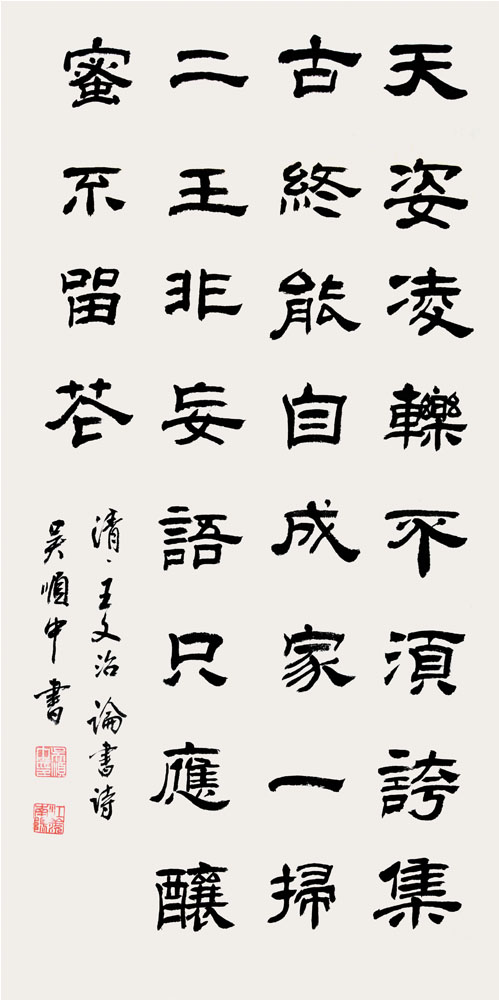 天姿凌轢不須誇集
古終能自成家一掃
二王非妄語只應釀
蜜不留花
清、王文治論書诗
吴順中書